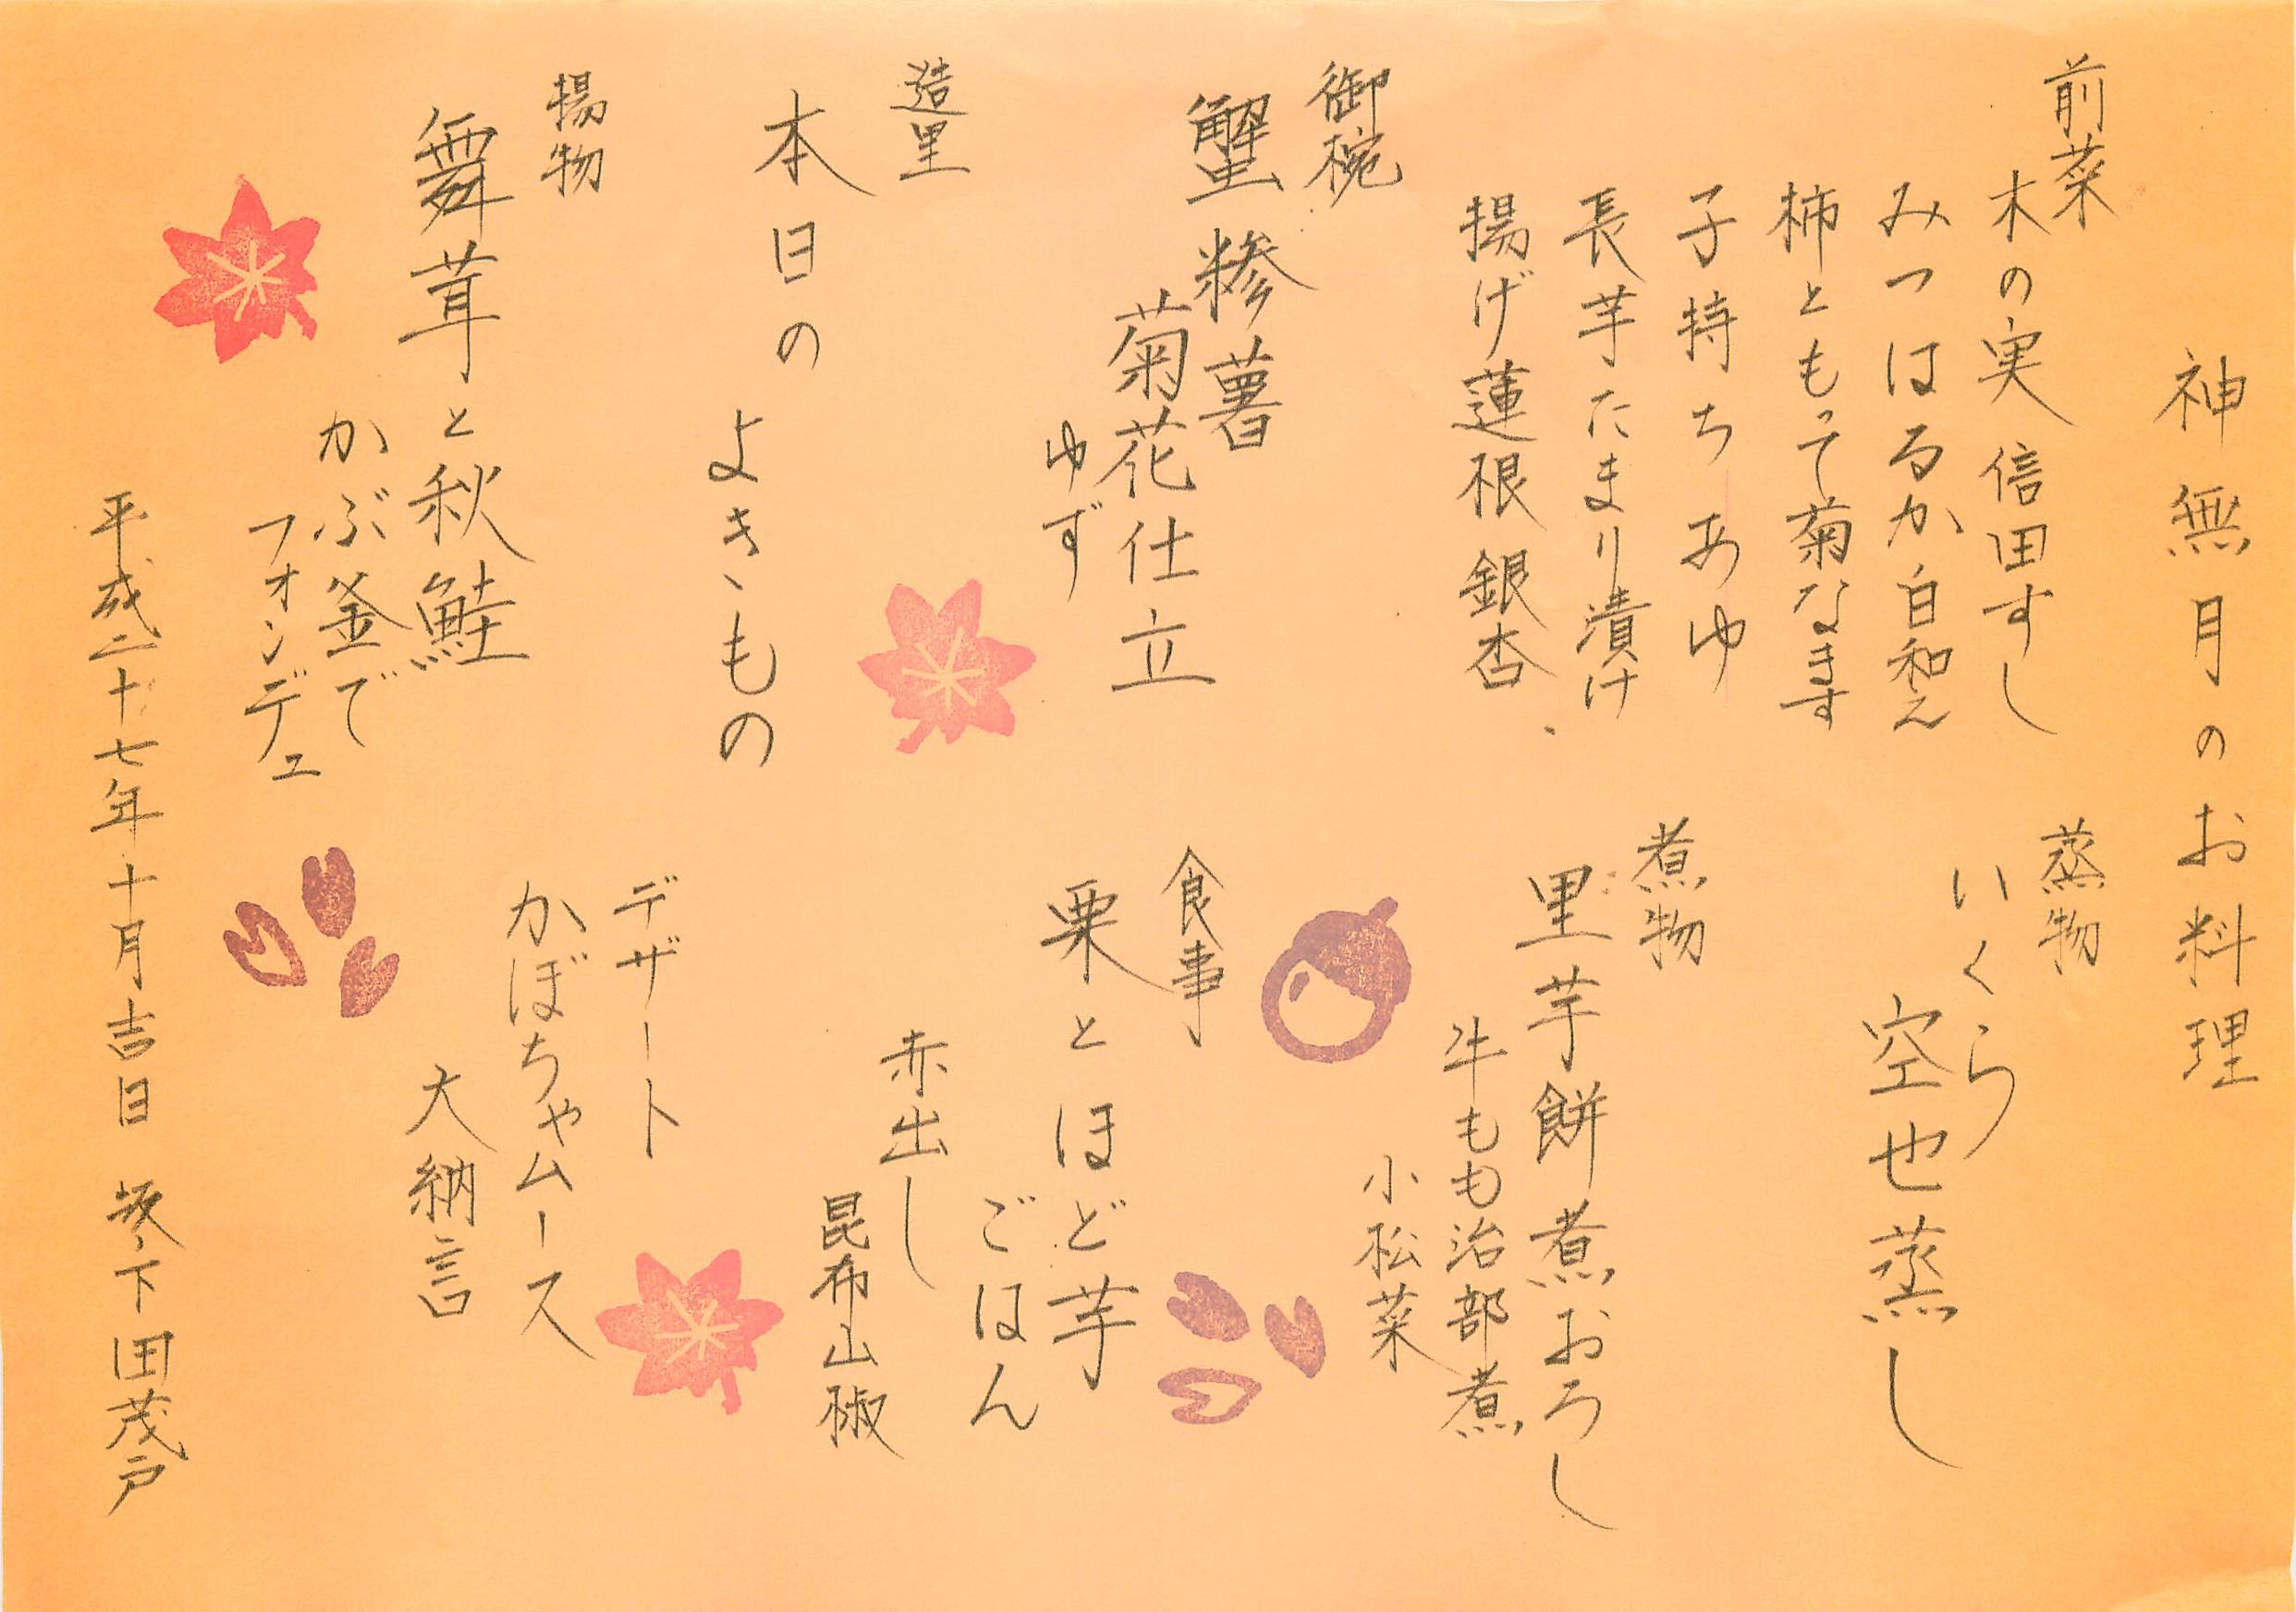 神無月のお料理
前菜
木の実信田すし
みつはるか白和え
柿ともって菊なます
子持ちあゆ
長芋たまり漬け
揚げ蓮根 銀杏
御椀
蟹糝薯
菊花仕立
ゆず
造里
本日の
よきもの
揚物
舞茸と秋鮭
かぶ釜で
フォンデュ
蒸物
いくら
空也蒸し
煮物
里芋餅煮おろし
牛もも治部煮
小松菜
食事
栗とほど芋
ごはん
赤出し
昆布山椒
デザート
かぼちゃムース
大納言
平成二十七年十月吉日 坂下田茂戸